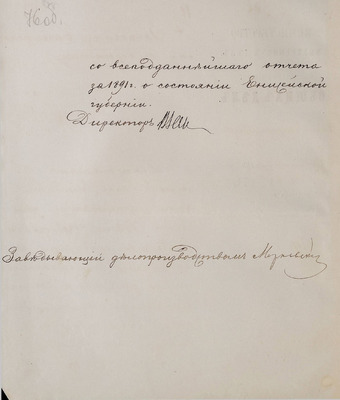 76 об.
со всеподданнѣйшаго отчета
за 1891 г. о состояніи Енисейской
губерніи.
Директоръ
Завѣдывающій дѣлопроизводствомъ